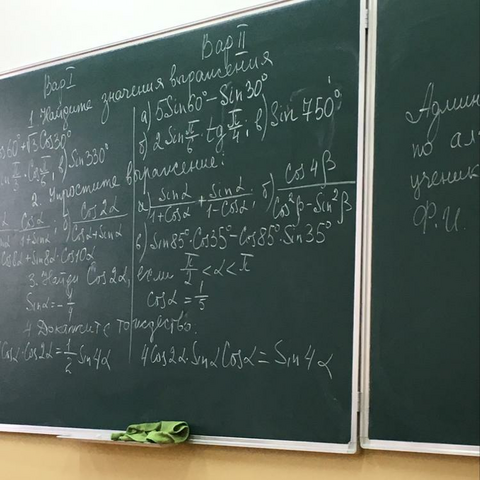 Вар I
Вар II
1. Найдите значения выражения
sin60°+√3 Cos30°
а) 5Sin60° – Sin30°
Sin π/3 · Cos π/6; в) Sin330°
б) 2Sin π/6 · tg π/4; в) Sin 750°
2. Упростите выражение:
Cosα/(1+Sinα); б) Cos2α/(Cosα+Sinα)
а) Sinα/(1+Cosα) + Sinα/(1-Cosα); б) Cos4β/(Cos²β–Sin²β)
+Sin8α·Cos10α
в) Sin85°·Cos35°–Cos85°·Sin35°
3. Найди Cos2α, если π/2 < α < π
Sinα = –1/4
Cosα = 1/5
4. Докажите тождество.
Cosα·Cos2α = 1/2 Sin4α
4Cos2α·SinαCosα = Sin4α
Админ
по ал
ученик
Ф.И.